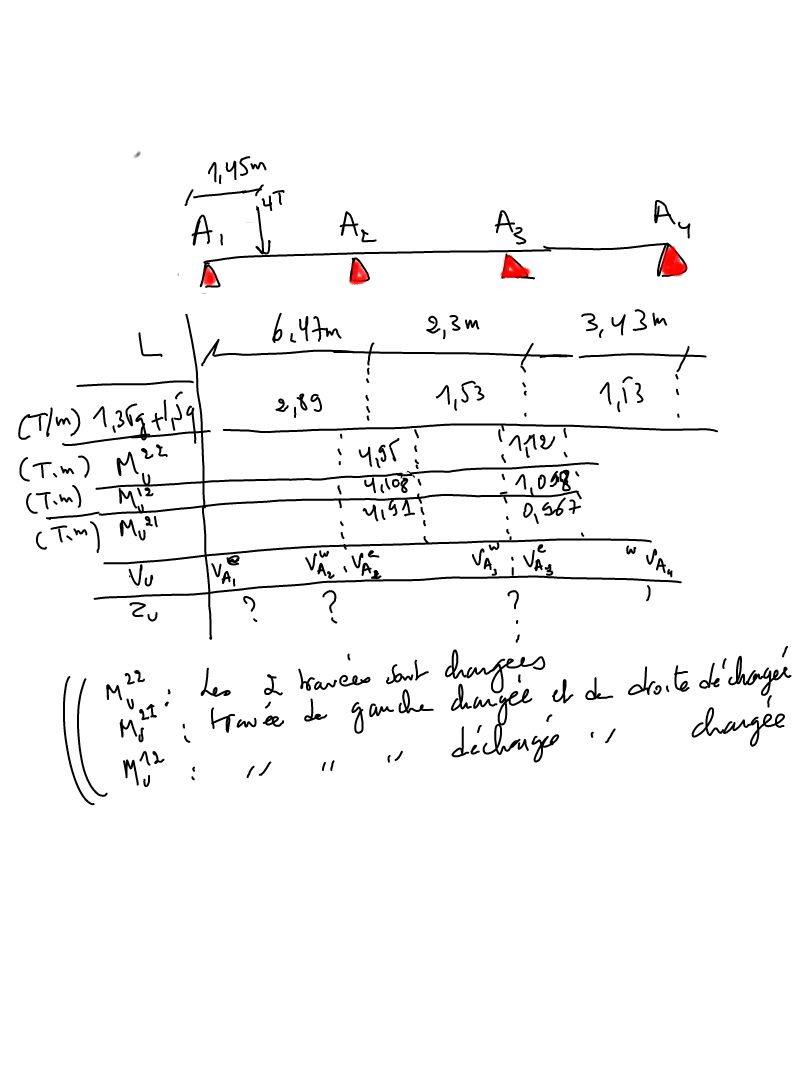 1,45m
4T
A1 A2 A3 A4
L 6,47m 2,3m 3,43m
(T/m) 1,35g+1,5q 2,89 1,53 1,53
(T.m) Mu22 4,95 1,12
(T.m) Mu12 4,108 1,098
(T.m) Mu21 4,91 0,967
Vu VA1e VA2w VA2e VA3w VA3e w VA4
? ? ?
Mu22 : Les 2 travées sont chargées
Mu21 : travée de gauche chargée et de droite déchargée
Mu12 : " " " déchargée " chargée